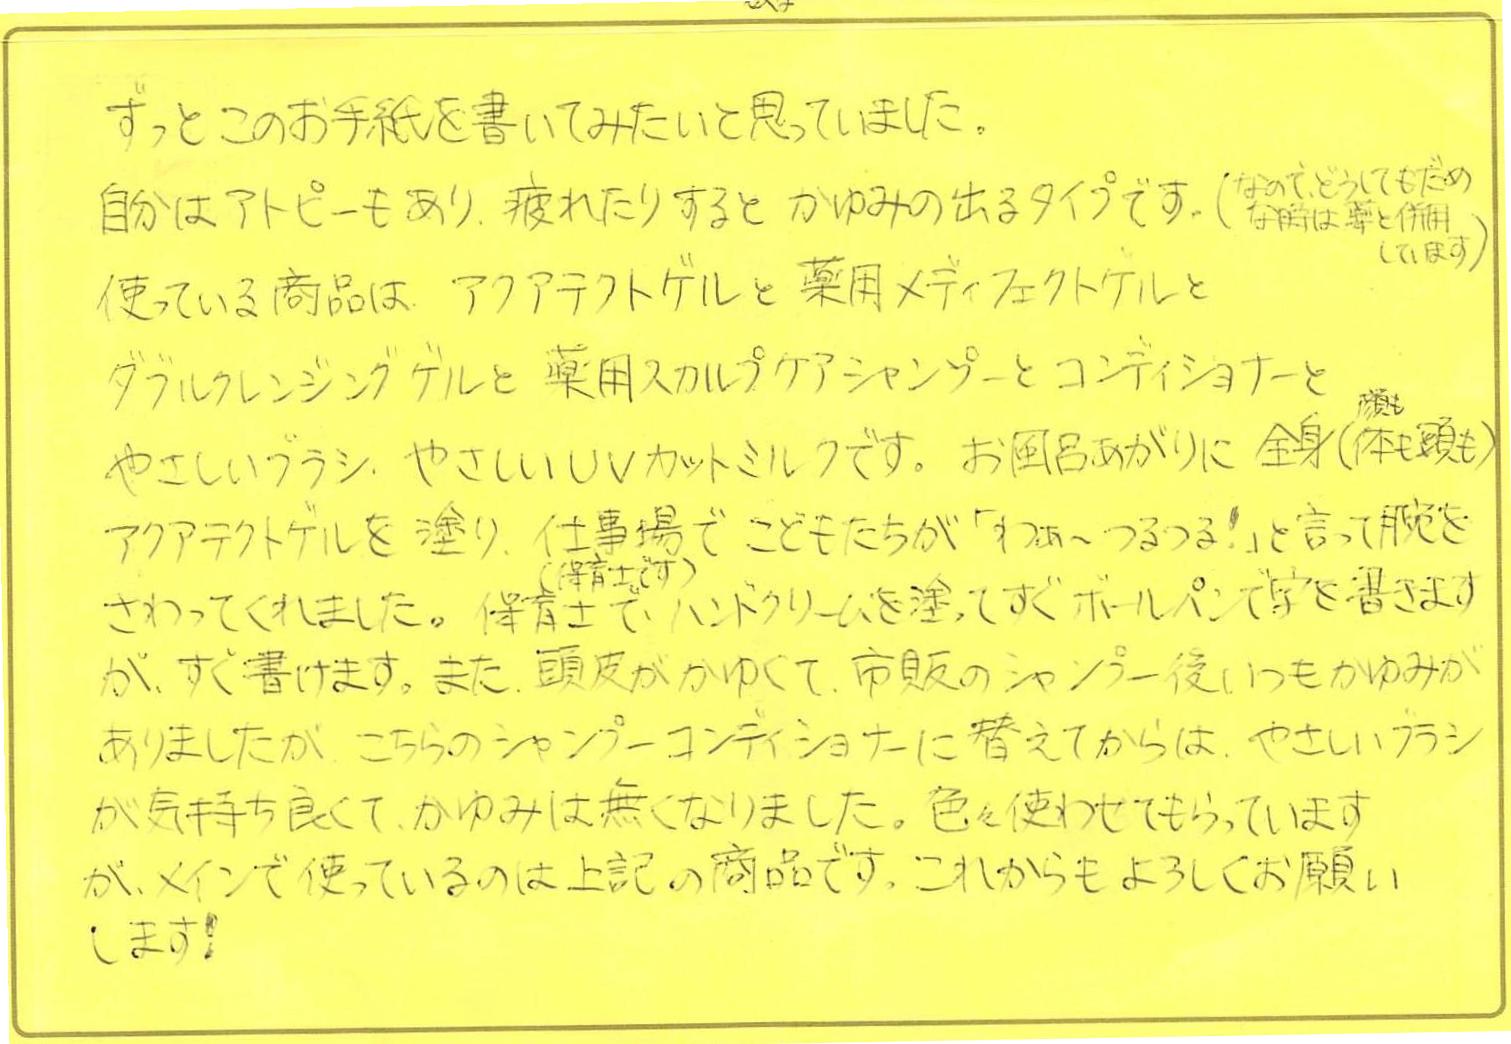 ずっとこのお手紙を書いてみたいと思っていました。
自分はアトピーもあり、疲れたりするとかゆみの出るタイプです。(なので、どうしてもだめ
な時は薬と併用
しています)
使っている商品は、アクアテクトゲルと薬用メディフェクトゲルと
ダブルクレンジングゲルと薬用スカルプケアシャンプーとコンディショナーと
やさしいブラシ、やさしいUVカットミルクです。お風呂あがりに全身(体も頭も)
顔も
アクアテクトゲルを塗り、仕事場でこどもたちが「わぁ〜つるつる!」と言って腕を
(保育士です)
さわってくれました。保育士で、ハンドクリームを塗ってすぐボールペンで字を書きます
が、すぐ書けます。また、頭皮がかゆくて、市販のシャンプー後いつもかゆみが
ありましたが、こちらのシャンプーコンディショナーに替えてからは、やさしいブラシ
が気持ち良くて、かゆみは無くなりました。色々使わせてもらっています
が、メインで使っているのは上記の商品です。これからもよろしくお願い
します!